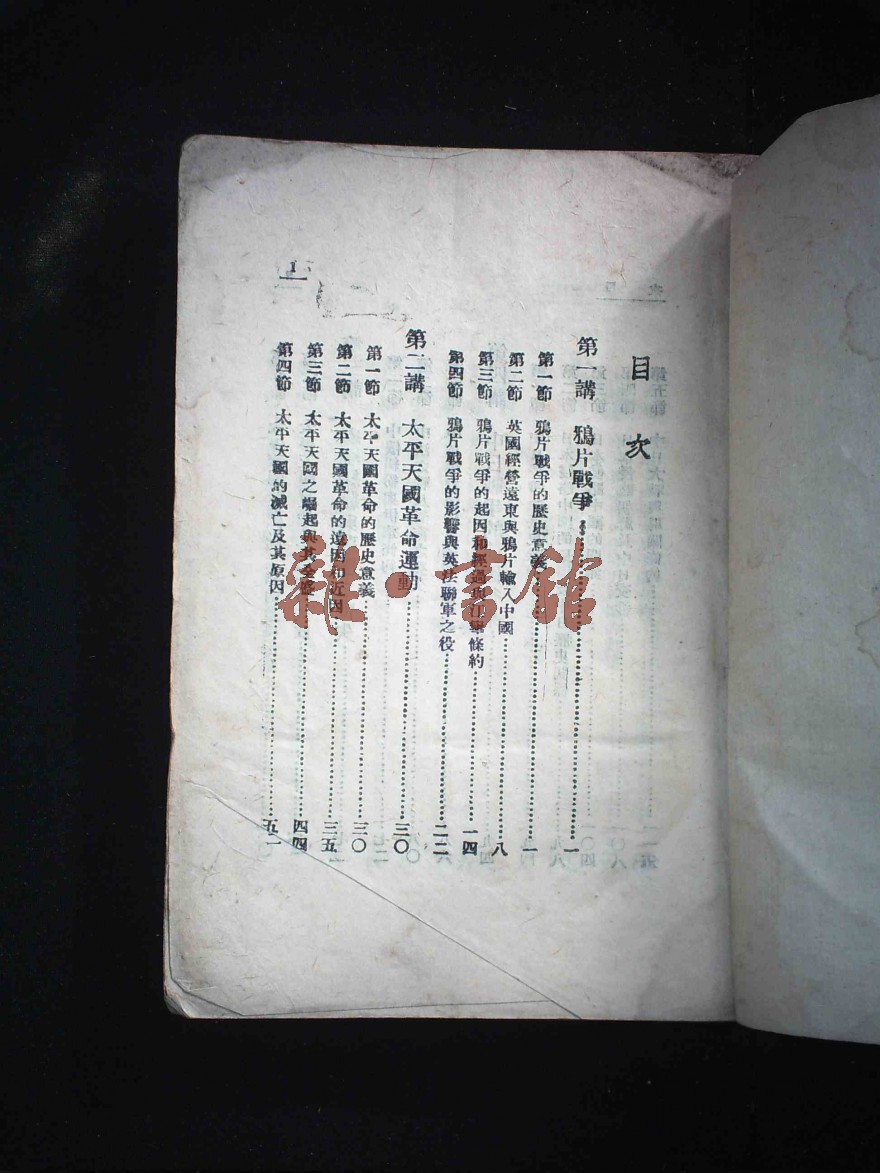 目次
第一講 鴉片戰爭……一
第一節 鴉片戰爭的歷史意義……一
第二節 英國經營遠東與鴉片輸入中國……八
第三節 鴉片戰爭的起因和經過與江寧條約……一四
第四節 鴉片戰爭的影響與英法聯軍之役……二二
第二講 太平天國革命運動……三〇
第一節 太平天國革命的歷史意義……三〇
第二節 太平天國革命的遠因和近因……三五
第三節 太平天國之崛起與其全盛……四四
第四節 太平天國的滅亡及其原因……五一
1
雜·書館